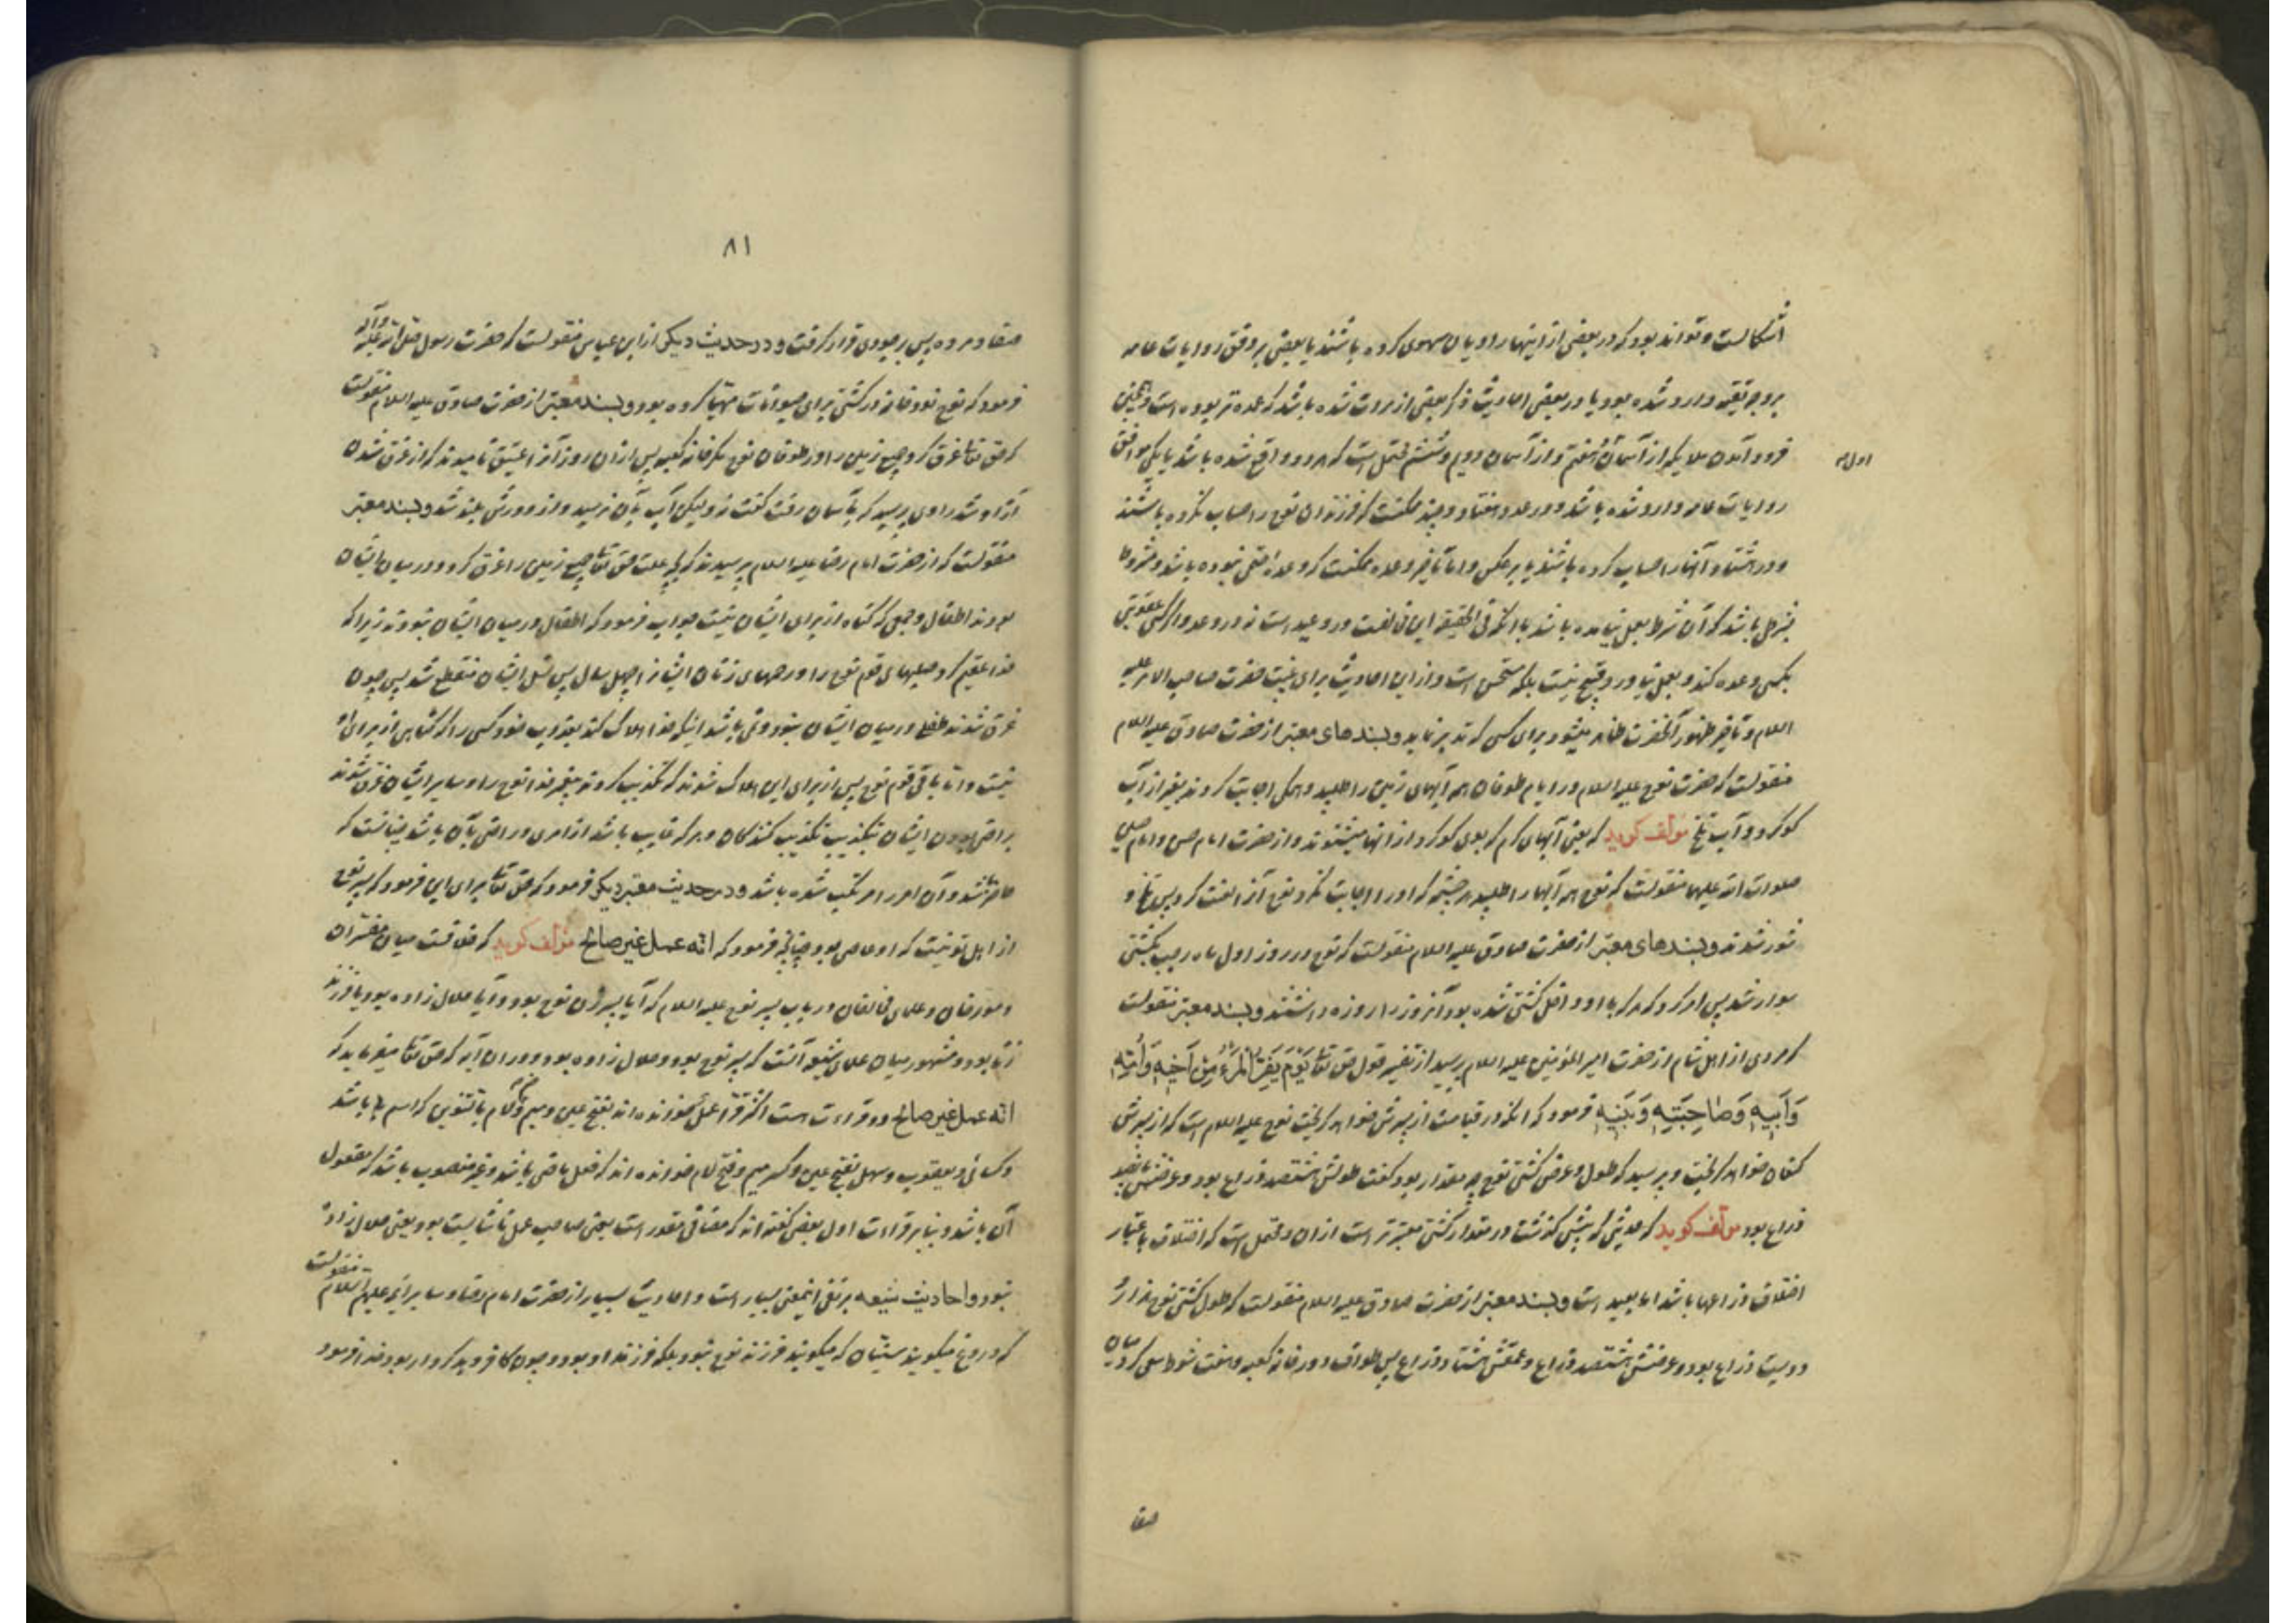 اشکالست و تواند بود که در بعضی از اینها راویان سهوی کرده باشند یا بعضی بر وفق روایات عامه
بر وجه تقیه وارد شده بود و یا در بعضی احادیث ذکر بعضی از نزوت شده باشد که عمده تر بوده است و همچنین
فرود آمدن ملایکه از آسمان هفتم و از آسمان دویم و ششم محتمل است که هر دو واقع شده باشد یا یکی موافق
اول
روایات عامه وارد شده باشد و در عدد هفتاد و چند ممکنست که فرزندان نوح را حساب نکرده باشند
و در هشتاد آنها را حساب کرده باشند یا بر عکس و اما تاخیر وعده ممکنست که وعده حتمی نبوده باشد و مشروط
بشرطی باشد که آن شرط بعمل نیامده باشد با آنکه فی الحقیقه این مخالفت در وعید است نه در وعد و اگر کسی عقوبتی
بکسی وعده کند و بعمل نیاورد قبیح نیست بلکه مستحسن است و از این احادیث برای غیبت حضرت صاحب الامر علیه
السلام و تاخیر ظهور آنحضرت ظاهر میشود برای کسی که تدبر نماید و بسندهای معتبر از حضرت صادق علیه السلام
منقولست که حضرت نوح علیه السلام در ایام طوفان همه آبهای زمین را طلبید و همگی اجابت کردند بغیر از آب
کوکرد و آب تلخ مؤلف گوید که یعنی آبهای گرم که بوی کوکرد از آنها میشنوند و از حضرت امام حسن و امام حسین
صلوات الله علیهما منقولست که نوح همه آبها را طلبید هر چشمه که او را اجابت نکرد نوح آنرا لعنت کرد پس تلخ و
شور شدند و بسندهای معتبر از حضرت صادق علیه السلام منقولست که نوح در روز اول ماه رجب بکشتی
سوار شد پس امر کرد که هر که با او داخل کشتی شده بود آنروز را روزه داشتند و بسند معتبر منقولست
که مردی از اهل شام از حضرت امیر المؤمنین علیه السلام پرسید از تفسیر قول حق تعالی یَوْمَ یَفِرُّ الْمَرْءُ مِنْ اَخِیهِ وَاُمِّهِ
وَاَبِیهِ وَصٰاحِبَتِهِ وَبَنِیهِ فرمود که آنکه در قیامت از پسرش خواهد گریخت نوح علیه السلام است که از پسرش
کنعان خواهد گریخت و پرسید که طول و عرض کشتی نوح چه مقدار بود گفت طولش هشتصد ذراع بود و عرضش پانصد
ذراع بود مؤلف گوید که حدیثی که پیش گذشت در مقدار کشتی معتبرتر است از ان و محتمل است که اختلاف باعتبار
اختلاف ذراعها باشد اما بعید است و بسند معتبر از حضرت صادق علیه السلام منقولست که طول کشتی نوح هزار و
دویست ذراع بود و عرضش هشتصد ذراع و عمقش هشتاد ذراع پس طواف دور خانه کعبه و هفت شوط سعی کرد میان
صفا
۸۱
صفا و مروه پس بر جودی قرار گرفت و در حدیث دیگر از ابن عباس منقولست که حضرت رسول صلی الله علیه و آله
فرمود که نوح نود خانه در کشتی برای حیوانات مهیا کرده بود و بسند معتبر از حضرت صادق علیه السلام منقولست
که حق تعالی غرق کرد جمیع زمین را در طوفان نوح مگر خانه کعبه پس از ان روز آنرا عتیق نامیدند که از غرق شدن
آزاد شد راوی پرسید که بآسمان رفت گفت نه ولیکن آب بآن نرسید و از دورش بلند شد و بسند معتبر
منقولست که از حضرت امام رضا علیه السلام پرسیدند که بچه علت حق تعالی جمیع زمین را غرق کرد و در میان ایشان
بودند اطفال و جمعی که گناه از برای ایشان نیست جواب فرمود که اطفال در میان ایشان نبودند زیرا که
خدا عقیم کرد صلبهای قوم نوح را و رحمهای زنان ایشانرا چهل سال پس نسل ایشان منقطع شد پس چون
غرق شدند طفلی در میان ایشان نبود و نمی باشد اینکه خدا هلاک کند بعذاب خود کسی را که گناهی از برای او
نیست و اما باقی قوم نوح پس از برای این هلاک شدند که تکذیب کردند پیغمبر خدا نوح را و سایر ایشان غرق شدند
براضی بودن ایشان بتکذیب تکذیب کنندگان و هر که غایب باشد از امری و راضی بآن باشد چنانست که
حاضر شد و آن امر را مرتکب شده باشد و در حدیث معتبر دیگر فرمود که حق تعالی برای این فرمود که پسر نوح
از اهل تو نیست که او عاصی بود چنانچه فرمود که انّه عمل غیر صالح مؤلف گوید که خلافست میان مفسران
و مورخان و علمای مخالفان در باب پسر نوح علیه السلام که آیا پسر زن نوح بود و آیا حلال زاده بود یا فرزند
زنا بود و مشهور میان علمای شیعه آنست که پسر نوح بود و حلال زاده بود و در ان آیه که حق تعالی میفرماید که
انه عمل غیر صالح دو قراءت است اکثر قرّا عمل خوانده اند بفتح عین و میم و ضم لام با تنوین که اسم باشد
و کسائی و یعقوب و سهل بفتح عین و کسر میم و فتح لام خوانده اند که فعل ماضی باشد و غیر منصوب باشد که مفعول
آن باشد و بنابر قراءت اول بعضی گفته اند که مضافی مقدر است یعنی صاحب عمل ناشایست بود یعنی حلال زاده
نبود و احادیث شیعه بر نفی اینمعنی بسیار است و احادیث بسیار از حضرت امام رضا و سایر ائمه علیهم السلام منقولست
که دروغ میگویند سنیان که میگویند فرزند نوح نبود بلکه فرزند او بود و چون کافر و بدکردار بود خدا فرمود